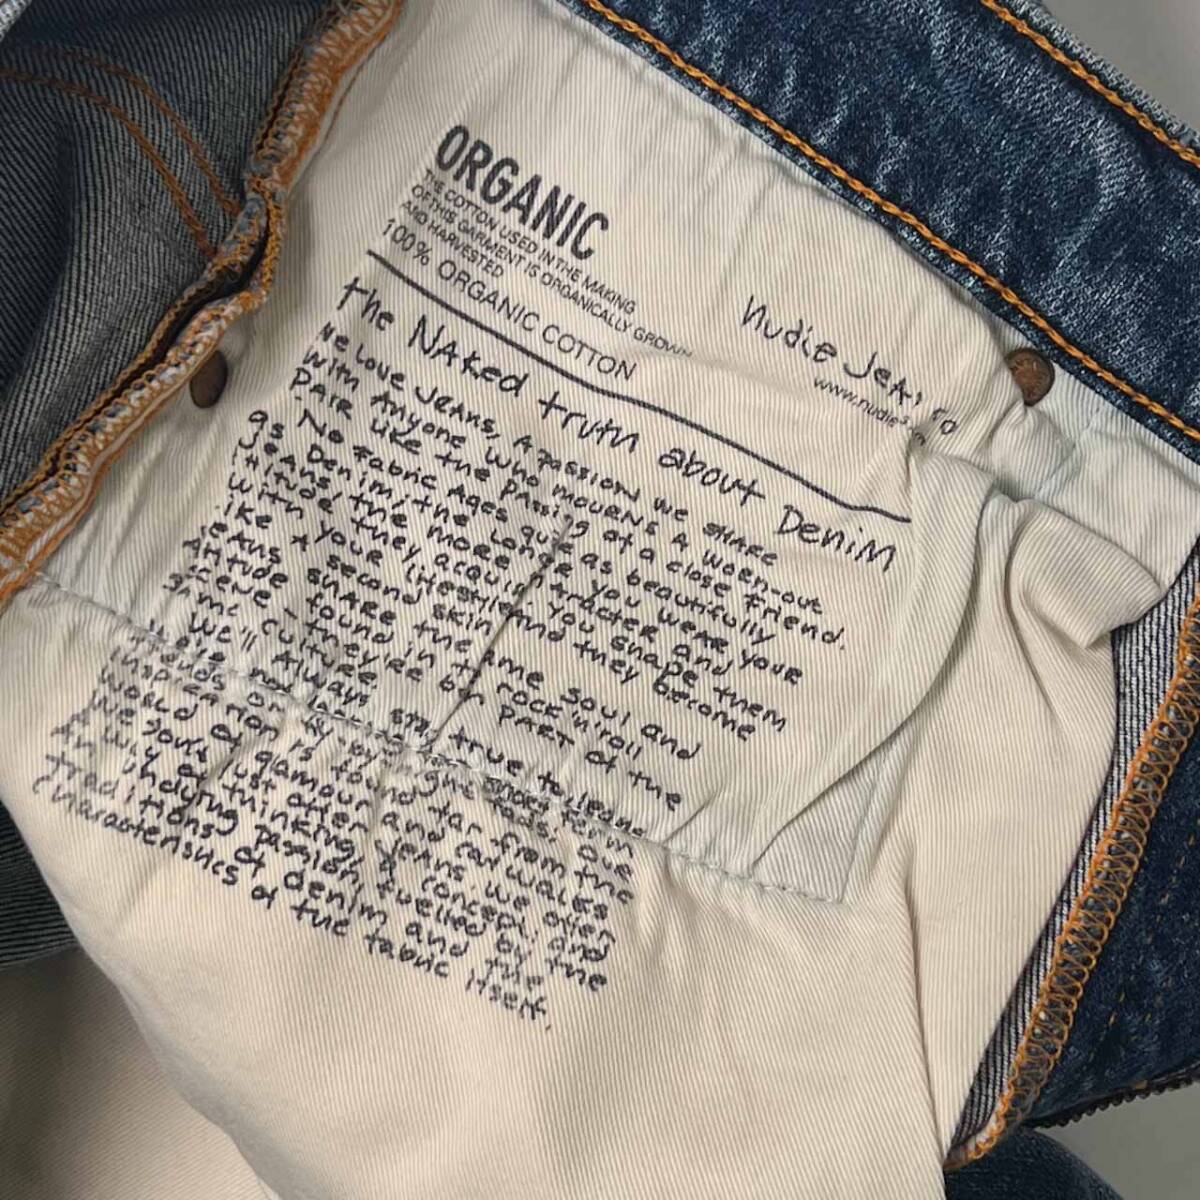 ORGANIC
THE COTTON USED IN THE MAKING
OF THIS GARMENT IS ORGANICALLY GROWN
AND HARVESTED
100% ORGANIC COTTON
Nudie Jeans co
www.nudie
the NAked truth about DeniM
We Love JeANs, A Passion we share
With Anyone Who mourns A worn-out
PAIR Like the Passing of a close friend.
No Fabric Ages quite as beautifully
as Denim, the longer you wear your
jeans the more character and
attitude they acquire. You shape them
with your lifestyle, and they become
like A second skin.
Jeans share the same soul and
Attitude found in the rock'n'roll
scene - they're both PART of the
same culture.
We'll Always stay true to jeans
trends or by short term
fads. Our
inspiration is found far from the
world of glamour and cat walks
We don't just offer jeans. We offer
An way of thinking, a concept, and
An undying passion fuelled by the
traditions of denim and the
characteristics of the fabric itself.